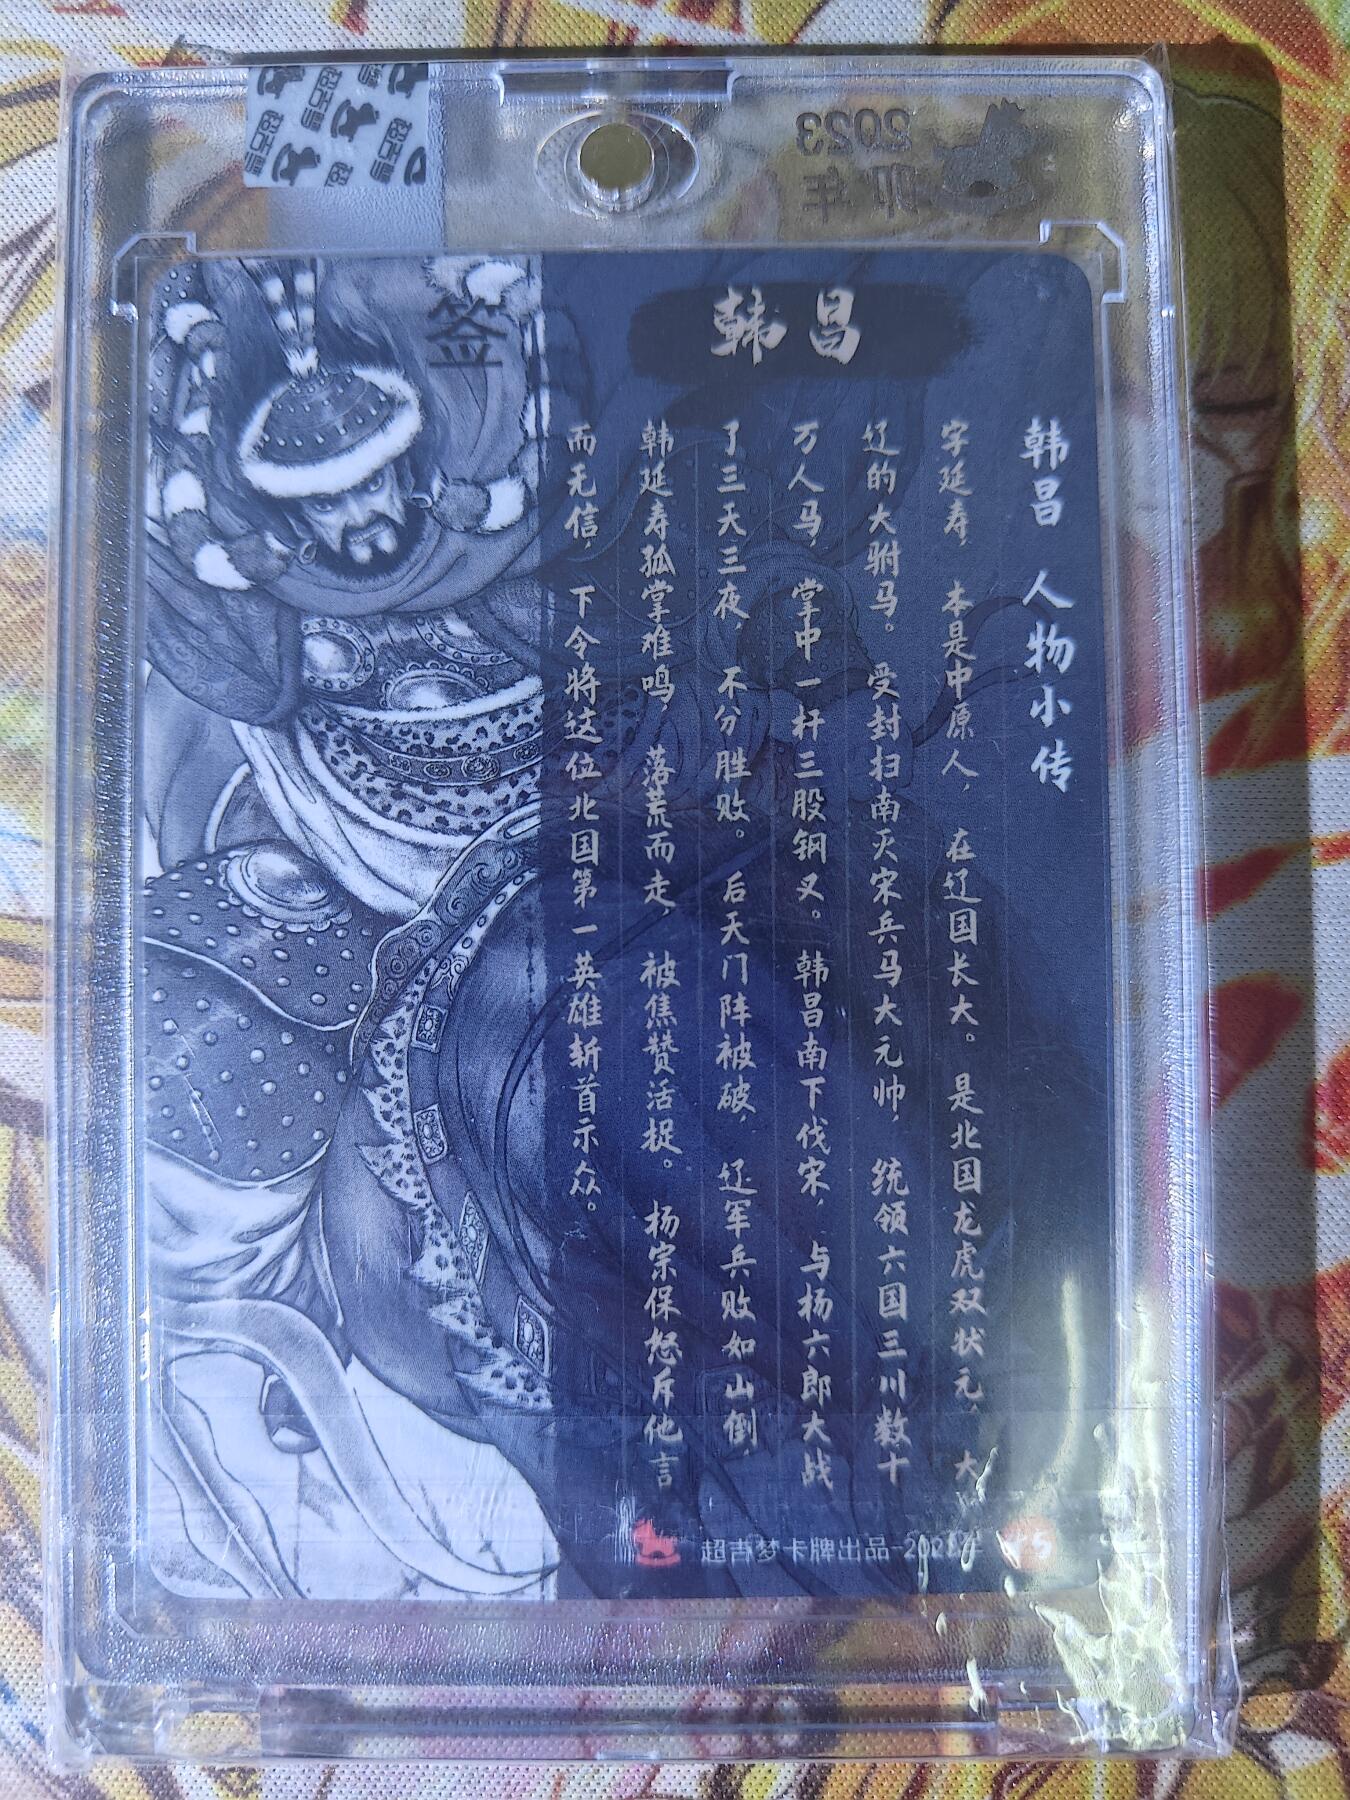 2023
卯年
签
韩昌
韩昌 人物小传
字延寿，本是中原人，在辽国长大。是北国龙虎双状元，大
辽的大驸马。受封扫南灭宋兵马大元帅，统领六国三川数十
万人马，掌中一杆三股钢叉。韩昌南下伐宋，与杨六郎大战
了三天三夜，不分胜败。后天门阵被破，辽军兵败如山倒，
韩延寿孤掌难鸣，落荒而走，被焦赞活捉。杨宗保怒斥他言
而无信，下令将这位北国第一英雄斩首示众。
超吉梦卡牌出品